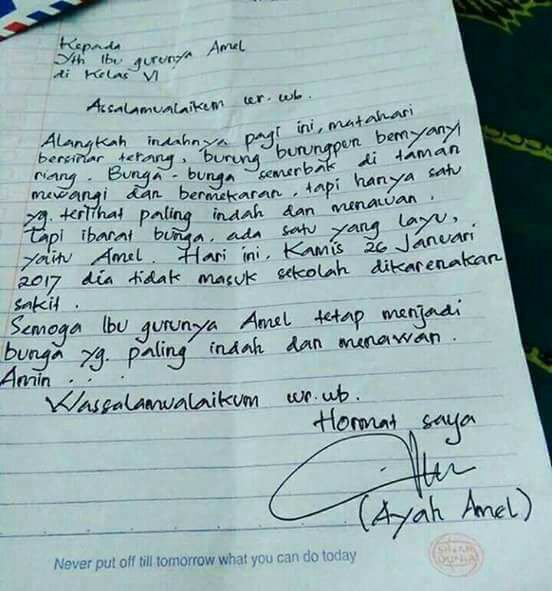 Kepada
Yth Ibu gurunya Amel
di Kelas VI
Assalamualaikum wr. wb.
Alangkah indahnya pagi ini, matahari
bersinar terang, burung burungpun bernyanyi
riang. Bunga-bunga semerbak di taman
mewangi dan bermekaran, tapi hanya satu
yg. terlihat paling indah dan menawan.
Tapi ibarat bunga, ada satu yang layu,
yaitu Amel. Hari ini, Kamis 26 Januari
2017 dia tidak masuk sekolah dikarenakan
sakit.
Semoga Ibu gurunya Amel tetap menjadi
bunga yg. paling indah dan menawan.
Amin . . .
Wassalamualaikum wr. wb.
Hormat saya
(Ayah Amel)
Never put off till tomorrow what you can do today
SIDAR DUNIA